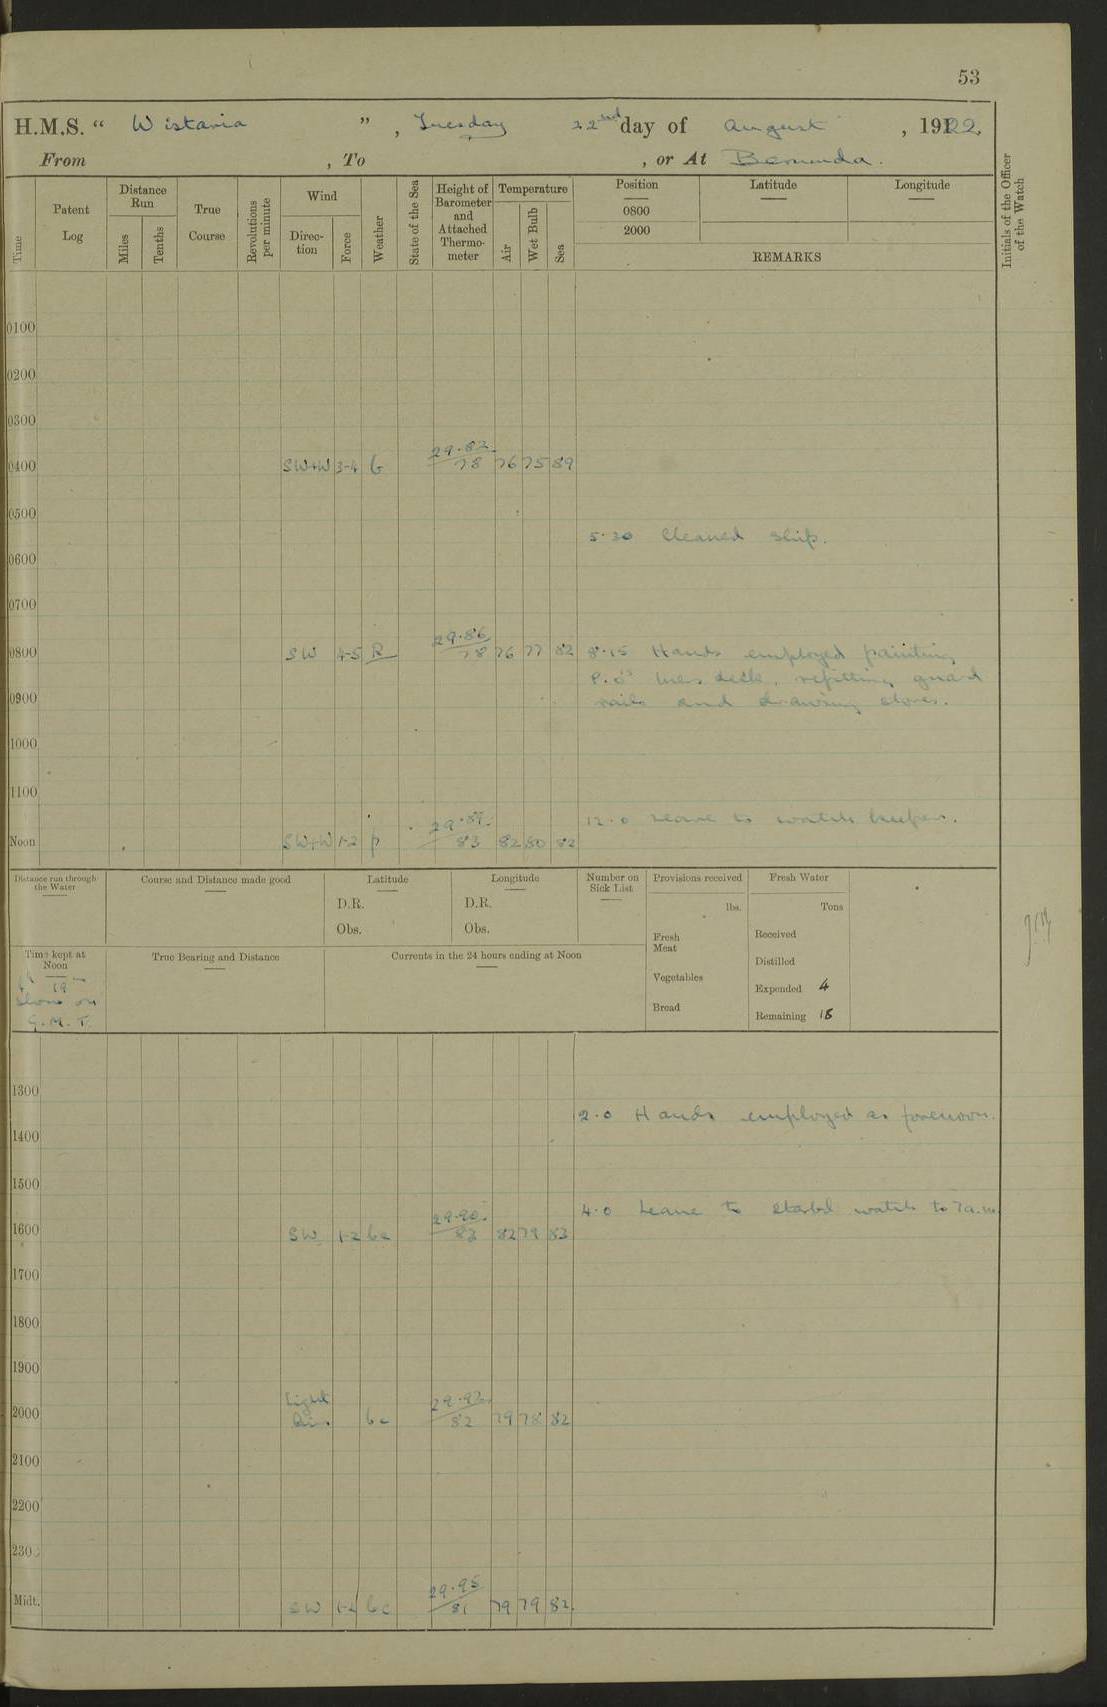 53
H.M.S. “ Wistaria ” , Tuesday 22nd day of August , 1922.
From , To , or At Bermuda.
Time
Patent Log
Distance Run
Miles
Tenths
True Course
Revolutions per minute
Wind
Direc-tion
Force
Weather
State of the Sea
Height of Barometer and Attached Thermo-meter
Temperature
Air
Wet Bulb
Sea
Position
0800
2000
Latitude
Longitude
REMARKS
Initials of the Officer of the Watch
0100
0200
0300
0400 SW+W 3-4 29.82 78 76 75 89
0500
5.30 Cleaned ship.
0600
0700
0800 SW 4-5 R 29.86 78 76 77 82 8.15 Hands employed painting
P.O's mess deck, refitting guard
0900 rails and drawing stores.
1000
1100
12.0 Leave to watch keepers.
Noon SW+W 1-2 p 29.89 83 82 80 82
Distance run through the Water
Course and Distance made good
Latitude
D.R.
Obs.
Longitude
D.R.
Obs.
Number on Sick List
Provisions received
lbs.
Fresh Meat
Vegetables
Bread
Fresh Water
Tons
Received
Distilled
Expended 4
Remaining 18
Time kept at Noon
4h 19m
slow on
G.M.T.
True Bearing and Distance
Currents in the 24 hours ending at Noon
1300
2.0 Hands employed as forenoon.
1400
1500
4.0 Leave to starbd watch to 7a.m.
1600 SW 1-2 bc 29.90 83 82 79 83
1700
1800
1900
2000 Light Air. bc 29.93 82 79 78 82
2100
2200
230
Midt. SW 1-2 bc 29.95 81 79 79 82.